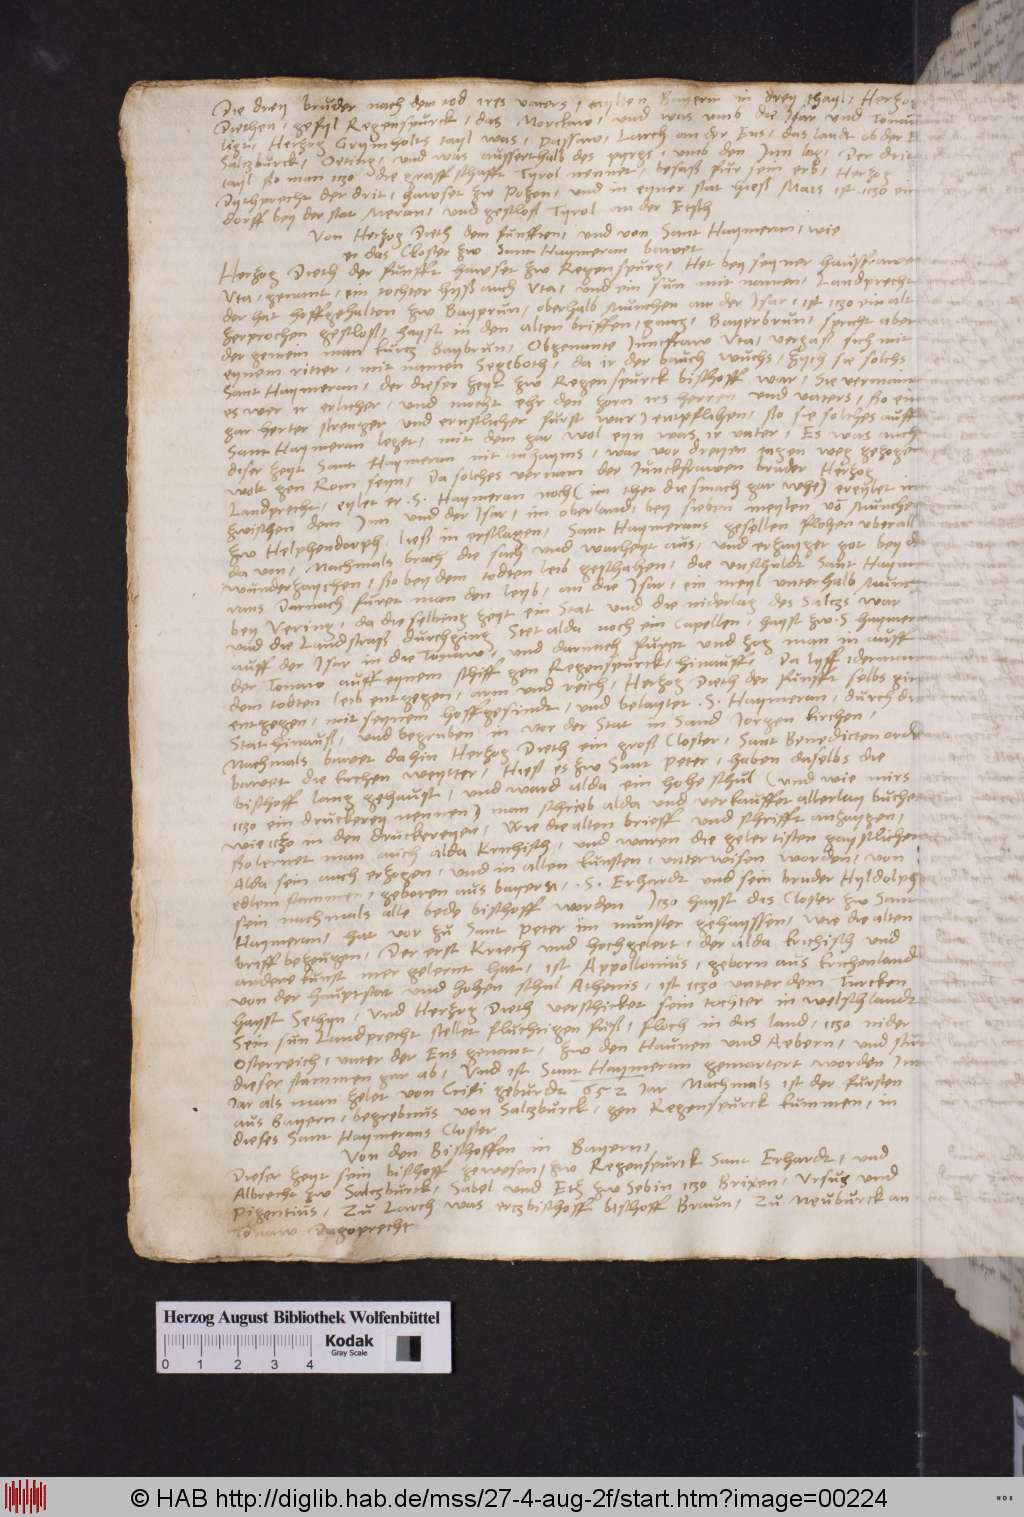 Die drey bruder nach dem tod irs vaters, taylten Bayern in drey thayl, Herzog
Diethen, gefyl Regenspurck, das Norckaw, und was umb die Isar und Tonaw
ligt, Herzog Grymholts tayl was, Passaw, Larch an der Ens, das landt ob der E
Salczburck, Oting, und was aussert halb des pyrgs, umb den Inn lag, Der drit
tayl so man iczo die graffschafft Tyrol nennet, besaß für sein erb, Herzog
Dythprecht der drit, hawset zw Pozen, und in eyner stat hieß Mais ist iczo ein
dorff bey der stat Meran, und geschloß Tyrol an der Etsch
Von Herzog Dieth dem funfften, und von Sant Haymeran, wie
er das Closter zw Sant Haymeran bawet
Herzog Dieth der funfft hawset zw Regenspurg, Het bey seyner hausfrawen
Uta, genant, ein tochter hyß auch Uta, und ein sun mit namen, Landprecht
der hat hoffgehalten zw Bayprun, oberhalb Munchen an der Isar, ist iczo ein alt
zerprochen geschloß, hayst in den alten brieffen, Bayerbrun, spricht aber
der gemein man kurcz Baybrun, Obgenante Junckfraw Uta, vergaß sich mit
eynem ritter, mit namen Segeboth, da ir der bauch wuchs, zych sie solchs
Sant Haymeran, der dieser zeyt zw Regenspurck bischoff war, Sie vermaint
es wer ir erlicher, und mocht ehr den zorn irs herren und vaters, so ein
gar herter strenger und ernstlicher furst war) entpfliehen, so sie solches auff
Sant Haymeran leget, mit dem gar wol eyn was ir vater, Es was auch
diser zeyt Sant Haymeran nit anhayms, war vor dreyen tagen weg gezogen
wolt gen Rom seyn, Da solches vernam der Junckfrawen bruder Herzog
Landprecht, eylet er .S. Haymeran noch (im thet die smach gar whe) ereylet in
zwischen dem Inn und der Isar, im oberland, bey sieben meylen vo Munchen
zw Helphendorph, ließ in erschlagen, Sant Haymerans gesellen flohen uberall
da von, Nachmals brach die sach und warheyt aus, und erzayget got bey d
wunderzaychen, so bey dem todten leib geschahen, die unschuldt Sant Haym
rans Darnach füret man den leyb, an die Isar, ein meyl unterhalb Munc
bey Vering, da die selbing zeyt ein Stat und die niderlag des Salczs war
und die Landstraß durchging Stet alda noch ein Capellen, hayst zw .S. haymer
auff der Isar in die Tonaw, und darnach furet und zog man in auff
der Tonaw auff eynem schiff gen Regenspurck, hinauff, Da lyff iderman
dem todten leib entgegen, arm und reich, Herzog Dieth der funfft selbs gin
entgegen, mit seynem hoffgesindt, und belaytet .S. Haymeran, durch die
Stat hinauß, und begruben in vor der Stat in Sand Jorgen kirchen,
Nachmals bawet dahin Herzog Dieth ein groß Closter, Sant Benedicten orde
bawet die kirchen weytter, Hieß es zw Sant Peter, haben daselbs die
bischoff lang gehaust, und ward alda ein hohe schul (und wie mirs
iczo ein druckerey nennen) man schrieb alda und verkauffet allerlay bucher
wie iczo in den druckereyen, Wie die alten brieff und schrifft anzaygen,
So lernet man auch alda Krichisch, und waren die gelertisten gaystlichen
Alda sein auch erzogen, und in allen kunsten, unterwisen worden, von
edlem stammen, geboren aus bayern, .S. Erhardt und sein bruder Hyldolph
sein nachmals alle bede bischoff worden Iczo hayst das Closter zw Sant
Haymeran, hat vor zu Sant Peter im munster gehayssen, wie die alten
briff bezeugen, Der erst Kriech und hochgelert, der alda krichisch und
andere kunst mer gelernt hat, ist Appollonius, geborn aus krichenlandt
von der hauptstat und hohen schul Athenis, ist iczo unter dem Turcken
hayst Sethyn, Und Herzog Dieth verschicket sein tochter in welschlandt
Sein sun Landprecht stelet fluchtigen fuß, floch in das land, iczo nider
Osterreich, unter der Ens genant, zw den Haunen und Aebern, und stur
dieser stammen gar ab, Und ist Sant Haymeran gemartert worden Im
Jar als man zelet von Cristi geburdt 652 Jar Nachmals ist der fursten
aus Bayern, begrebnus von Salczburck, gen Regenspurck kummen, in
dieses Sant Haymerans Closter
Von den Bischoffen in Bayern,
Dieser zeyt sein bischoff gewesen, zw Regenspurck Sant Erhardt, und
Albrecht zw Salczburck, Sabel und Etz zw Sebin iczo Brixen, Ursus und
Pigentius, Zu Larch was erczbischoff bischoff Braun, Zu Neuburck an
Tonaw Dagoprecht
Herzog August Bibliothek Wolfenbüttel
Kodak
Gray Scale
0 1 2 3 4
© HAB http://diglib.hab.de/mss/27-4-aug-2f/start.htm?image=00224